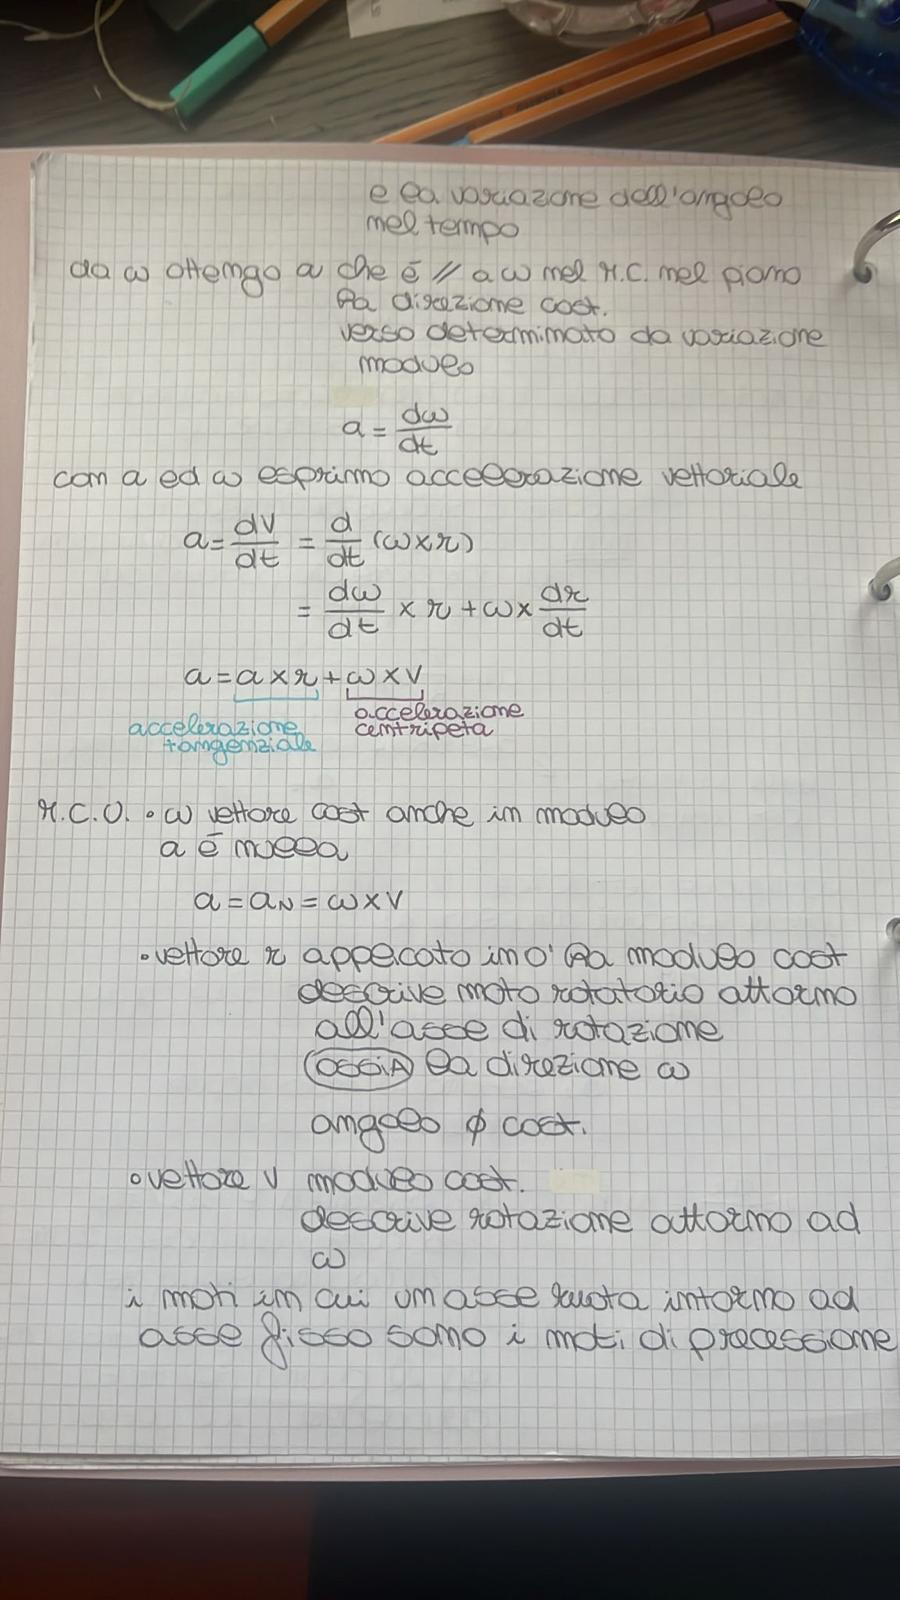 e la variazione dell'angolo
nel tempo
da ω ottengo α che é // a ω nel M.C. nel piano
ha direzione cost.
verso determinato da variazione
modulo
α = dω/dt
con α ed ω esprimo accelerazione vettoriale
a = dV/dt = d/dt (ω×r)
= dω/dt × r + ω× dr/dt
a = α × r + ω × V
accelerazione tangenziale
accelerazione centripeta
M.C.U. • ω vettore cost anche in modulo
α é nulla
a = aN = ω × V
• vettore r applicato in O' ha modulo cost
descrive moto rotatorio attorno
all'asse di rotazione
OSSIA la direzione ω
angolo ϕ cost.
• vettore V modulo cost.
descrive rotazione attorno ad
ω
i moti in cui un asse ruota intorno ad
asse fisso sono i moti di precessione